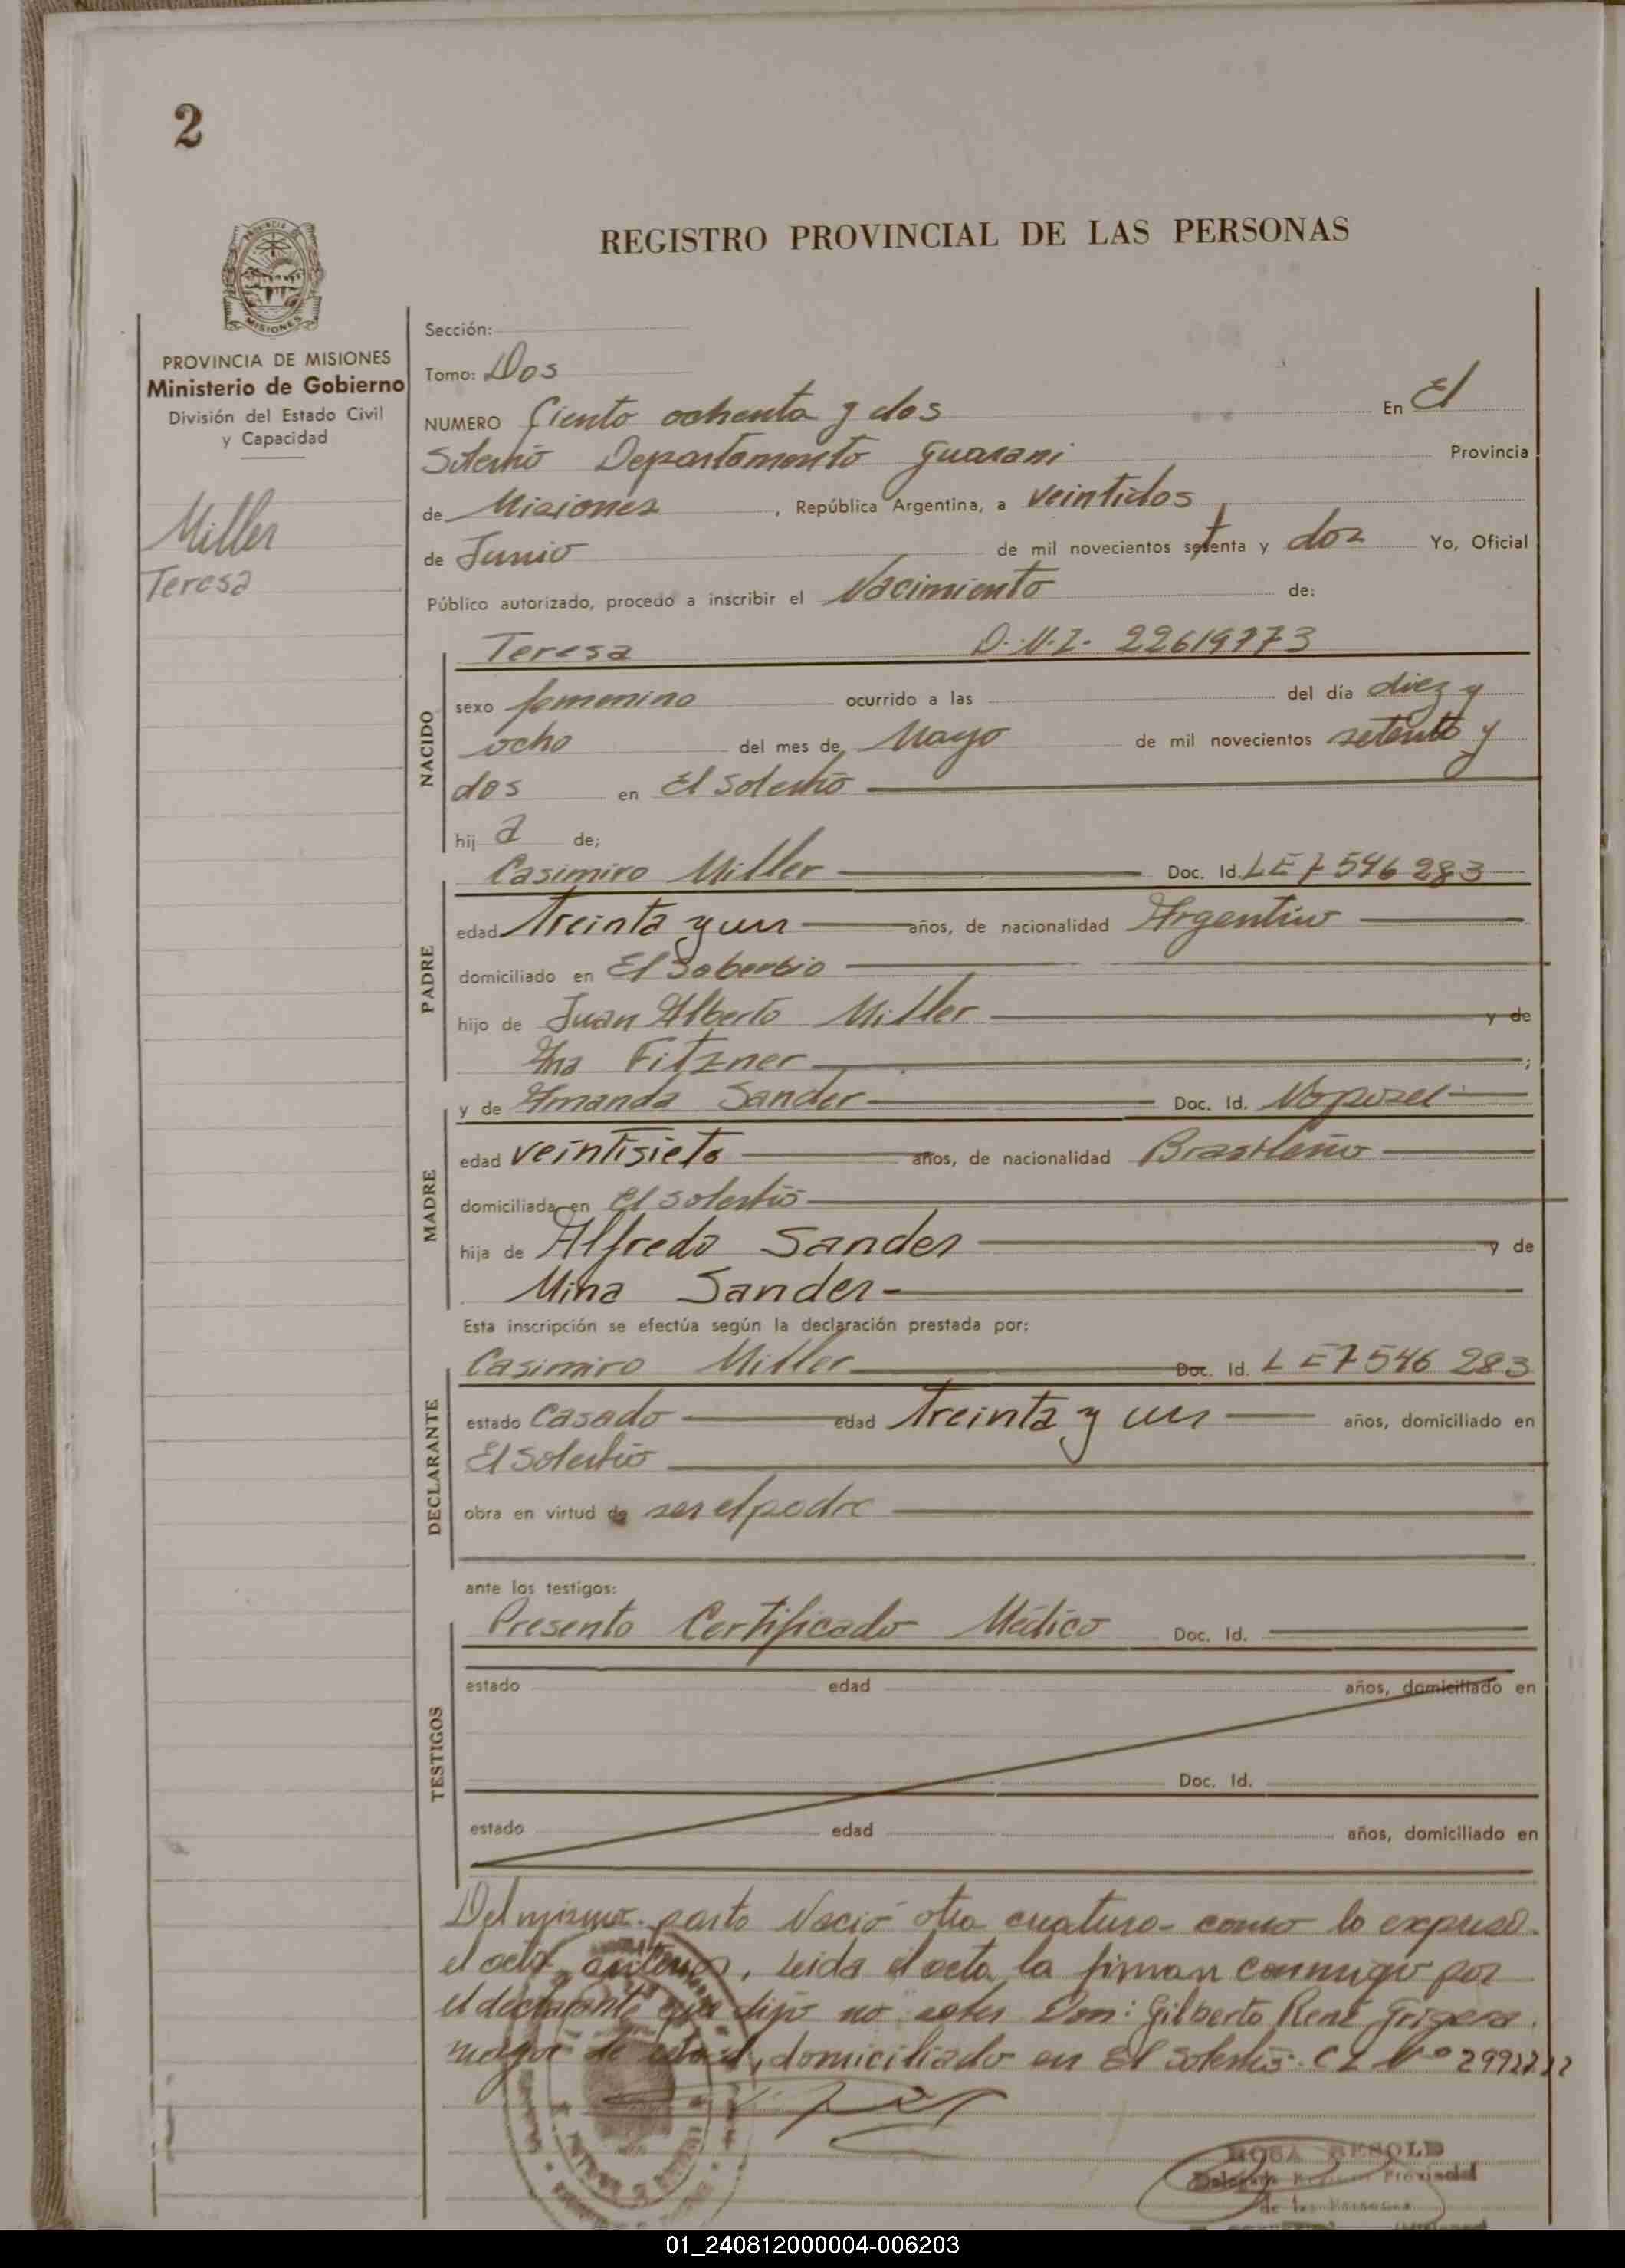 2
REGISTRO PROVINCIAL DE LAS PERSONAS
MISIONES
PROVINCIA DE MISIONES
Ministerio de Gobierno
División del Estado Civil
y Capacidad
Miller
Teresa
Sección:
Tomo: Dos
NUMERO Ciento ochenta y dos En El
Soberbio Departamento Guarani Provincia
de Misiones, República Argentina, a veintidos
de Junio de mil novecientos setenta y dos Yo, Oficial
Público autorizado, procedo a inscribir el Nacimiento de:
NACIDO
Teresa D.N.I. 22619773
sexo femenino ocurrido a las del día diez y
ocho del mes de Mayo de mil novecientos setenta y
dos en El Soberbio
hij a de;
PADRE
Casimiro Miller Doc. Id. LE 7546283
edad treinta y un años, de nacionalidad Argentino
domiciliado en El Soberbio
hijo de Juan Alberto Miller y de
Ana Fitzner ;
MADRE
y de Amanda Sander Doc. Id. No posee
edad veintisiete años, de nacionalidad Brasileño
domiciliada en El Soberbio
hija de Alfredo Sander y de
Mina Sander
Esta inscripción se efectúa según la declaración prestada por:
DECLARANTE
Casimiro Miller Doc. Id. LE 7546 283
estado Casado edad treinta y un años, domiciliado en
El Soberbio
obra en virtud de ser el padre
ante los testigos:
TESTIGOS
Presento Certificado Médico Doc. Id.
estado edad años, domiciliado en
Doc. Id.
estado edad años, domiciliado en
Del mismo parto Nació otra criatura como lo expresa
el acta anterior, Leida el acta la firman conmigo por
el declarante que dijo no saber Don: Gilberto René Grigera
mayor de edad, domiciliado en El Soberbio. C I Nº
ROSA BESOLD
Provincial
de las Personas
01_240812000004-006203